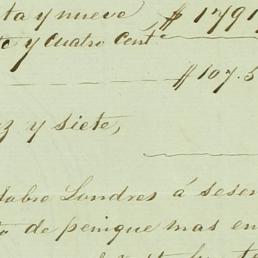 ta y nueve $ 1791
to y cuatro Cent.
$ 107.5
z y siete,
Londres á sesen
de penique mas en